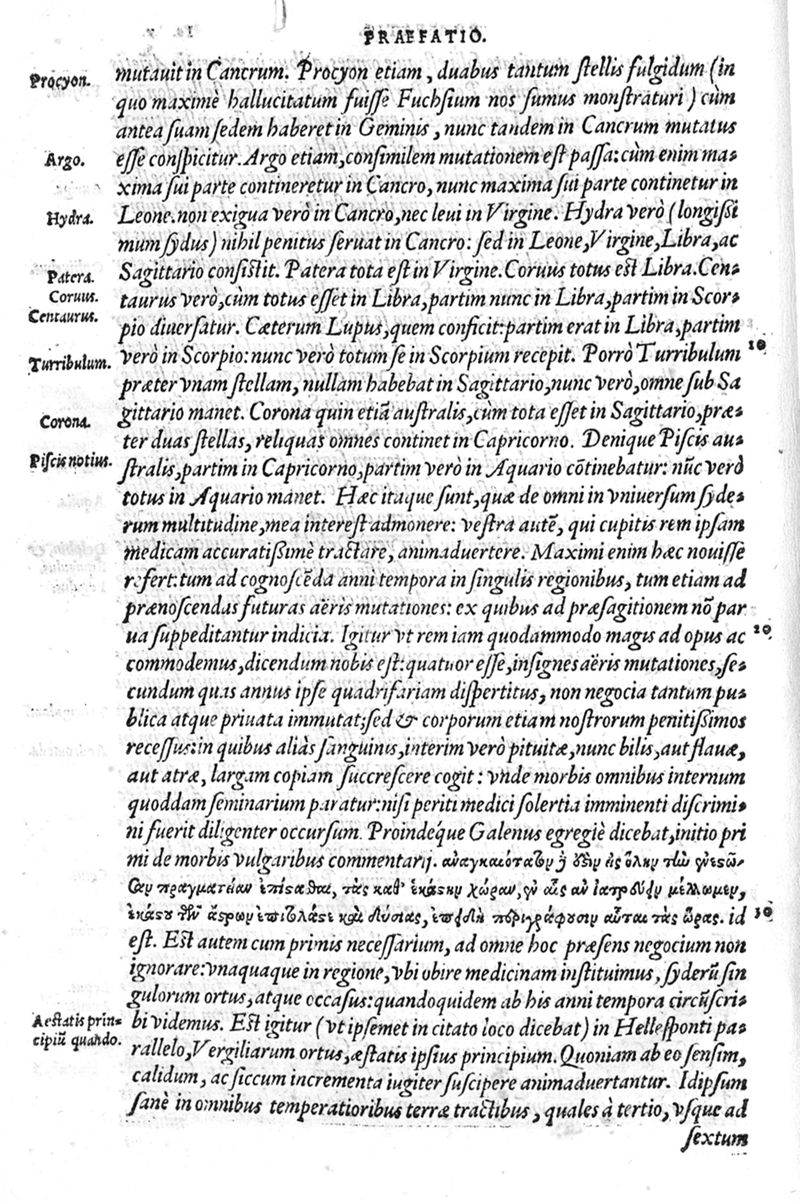 PRAEFATIO.
Procyon.
mutauit in Cancrum. Procyon etiam, duabus tantum stellis fulgidum (in
quo maximè hallucitatum fuisse Fuchsium nos sumus monstraturi) cùm
antea suam sedem haberet in Geminis, nunc tandem in Cancrum mutatus
Argo.
esse conspicitur. Argo etiam, consimilem mutationem est passa: cùm enim ma-
xima sui parte contineretur in Cancro, nunc maxima sui parte continetur in
Hydra.
Leone. non exigua verò in Cancro, nec leui in Virgine. Hydra verò (longissi
mum sydus) nihil penitus seruat in Cancro: sed in Leone, Virgine, Libra, ac
Patera.
Sagittario consistit. Patera tota est in Virgine. Coruus totus est Libra. Cen-
Coruus.
taurus verò, cùm totus esset in Libra, partim nunc in Libra, partim in Scor-
Centaurus.
pio diuersatur. Cæterum Lupus, quem conficit: partim erat in Libra, partim
Turribulum.
verò in Scorpio: nunc verò totum se in Scorpium recepit. Porrò Turribulum 10
præter vnam stellam, nullam habebat in Sagittario, nunc verò, omne sub Sa
Corona.
gittario manet. Corona quin etiã australis, cùm tota esset in Sagittario, præ-
ter duas stellas, reliquas omnes continet in Capricorno. Denique Piscis au-
Piscis notius.
stralis, partim in Capricorno, partim verò in Aquario cõtinebatur: nũc verò
totus in Aquario manet. Hæc itaque sunt, quæ de omni in vniuersum syde-
rum multitudine, mea interest admonere: vestra autẽ, qui cupitis rem ipsam
medicam accuratissimè tractare, animaduertere. Maximi enim hæc nouisse
refert: tum ad cognoscẽda anni tempora in singulis regionibus, tum etiam ad
prænoscendas futuras aëris mutationes: ex quibus ad præsagitionem nõ par
ua suppeditantur indicia. Igitur vt rem iam quodammodo magis ad opus ac 20
commodemus, dicendum nobis est: quatuor esse, insignes aëris mutationes, se-
cundum quas annus ipse quadrifariam dispertitus, non negocia tantum pu-
blica atque priuata immutat; sed & corporum etiam nostrorum penitissimos
recessus: in quibus aliàs sanguinis, interim verò pituitæ, nunc bilis, aut flauæ,
aut atræ, largam copiam succrescere cogit: vnde morbis omnibus internum
quoddam seminarium paratur: nisi periti medici solertia imminenti discrimi-
ni fuerit diligenter occursum. Proindéque Galenus egregiè dicebat, initio pri
mi de morbis vulgaribus commentarij. ἀναγκαιότατον
πραγματείαν ἐπίστασθαι, τὰς καθ' ἑκάστην χώραν, ἐν αἷς ἂν ἰατρεύειν μέλλωμεν,
ἑκάστου τῶν ἄστρων ἐπιτολάς τε καὶ δύσιας, ἐπειδὴ περιγράφουσιν αὗται τὰς ὥρας. id 30
est. Est autem cum primis necessarium, ad omne hoc præsens negocium non
ignorare: vnaquaque in regione, vbi obire medicinam instituimus, syderũ sin
gulorum ortus, atque occasus: quandoquidem ab his anni tempora circũscri-
Aestatis prin-
cipiũ quando.
bi videmus. Est igitur (vt ipsemet in citato loco dicebat) in Hellesponti pa-
rallelo, Vergiliarum ortus, æstatis ipsius principium. Quoniam ab eo sensim,
calidum, ac siccum incrementa iugiter suscipere animaduertantur. Idipsum
sanè in omnibus temperatioribus terræ tractibus, quales à tertio, vsque ad
sextum